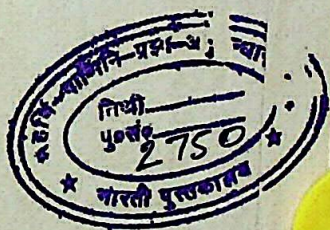 महर्षि-पाणिनि-प्रज्ञा-
तिथी
पु०सं० 2750
★ भारती पुस्तकालय ★